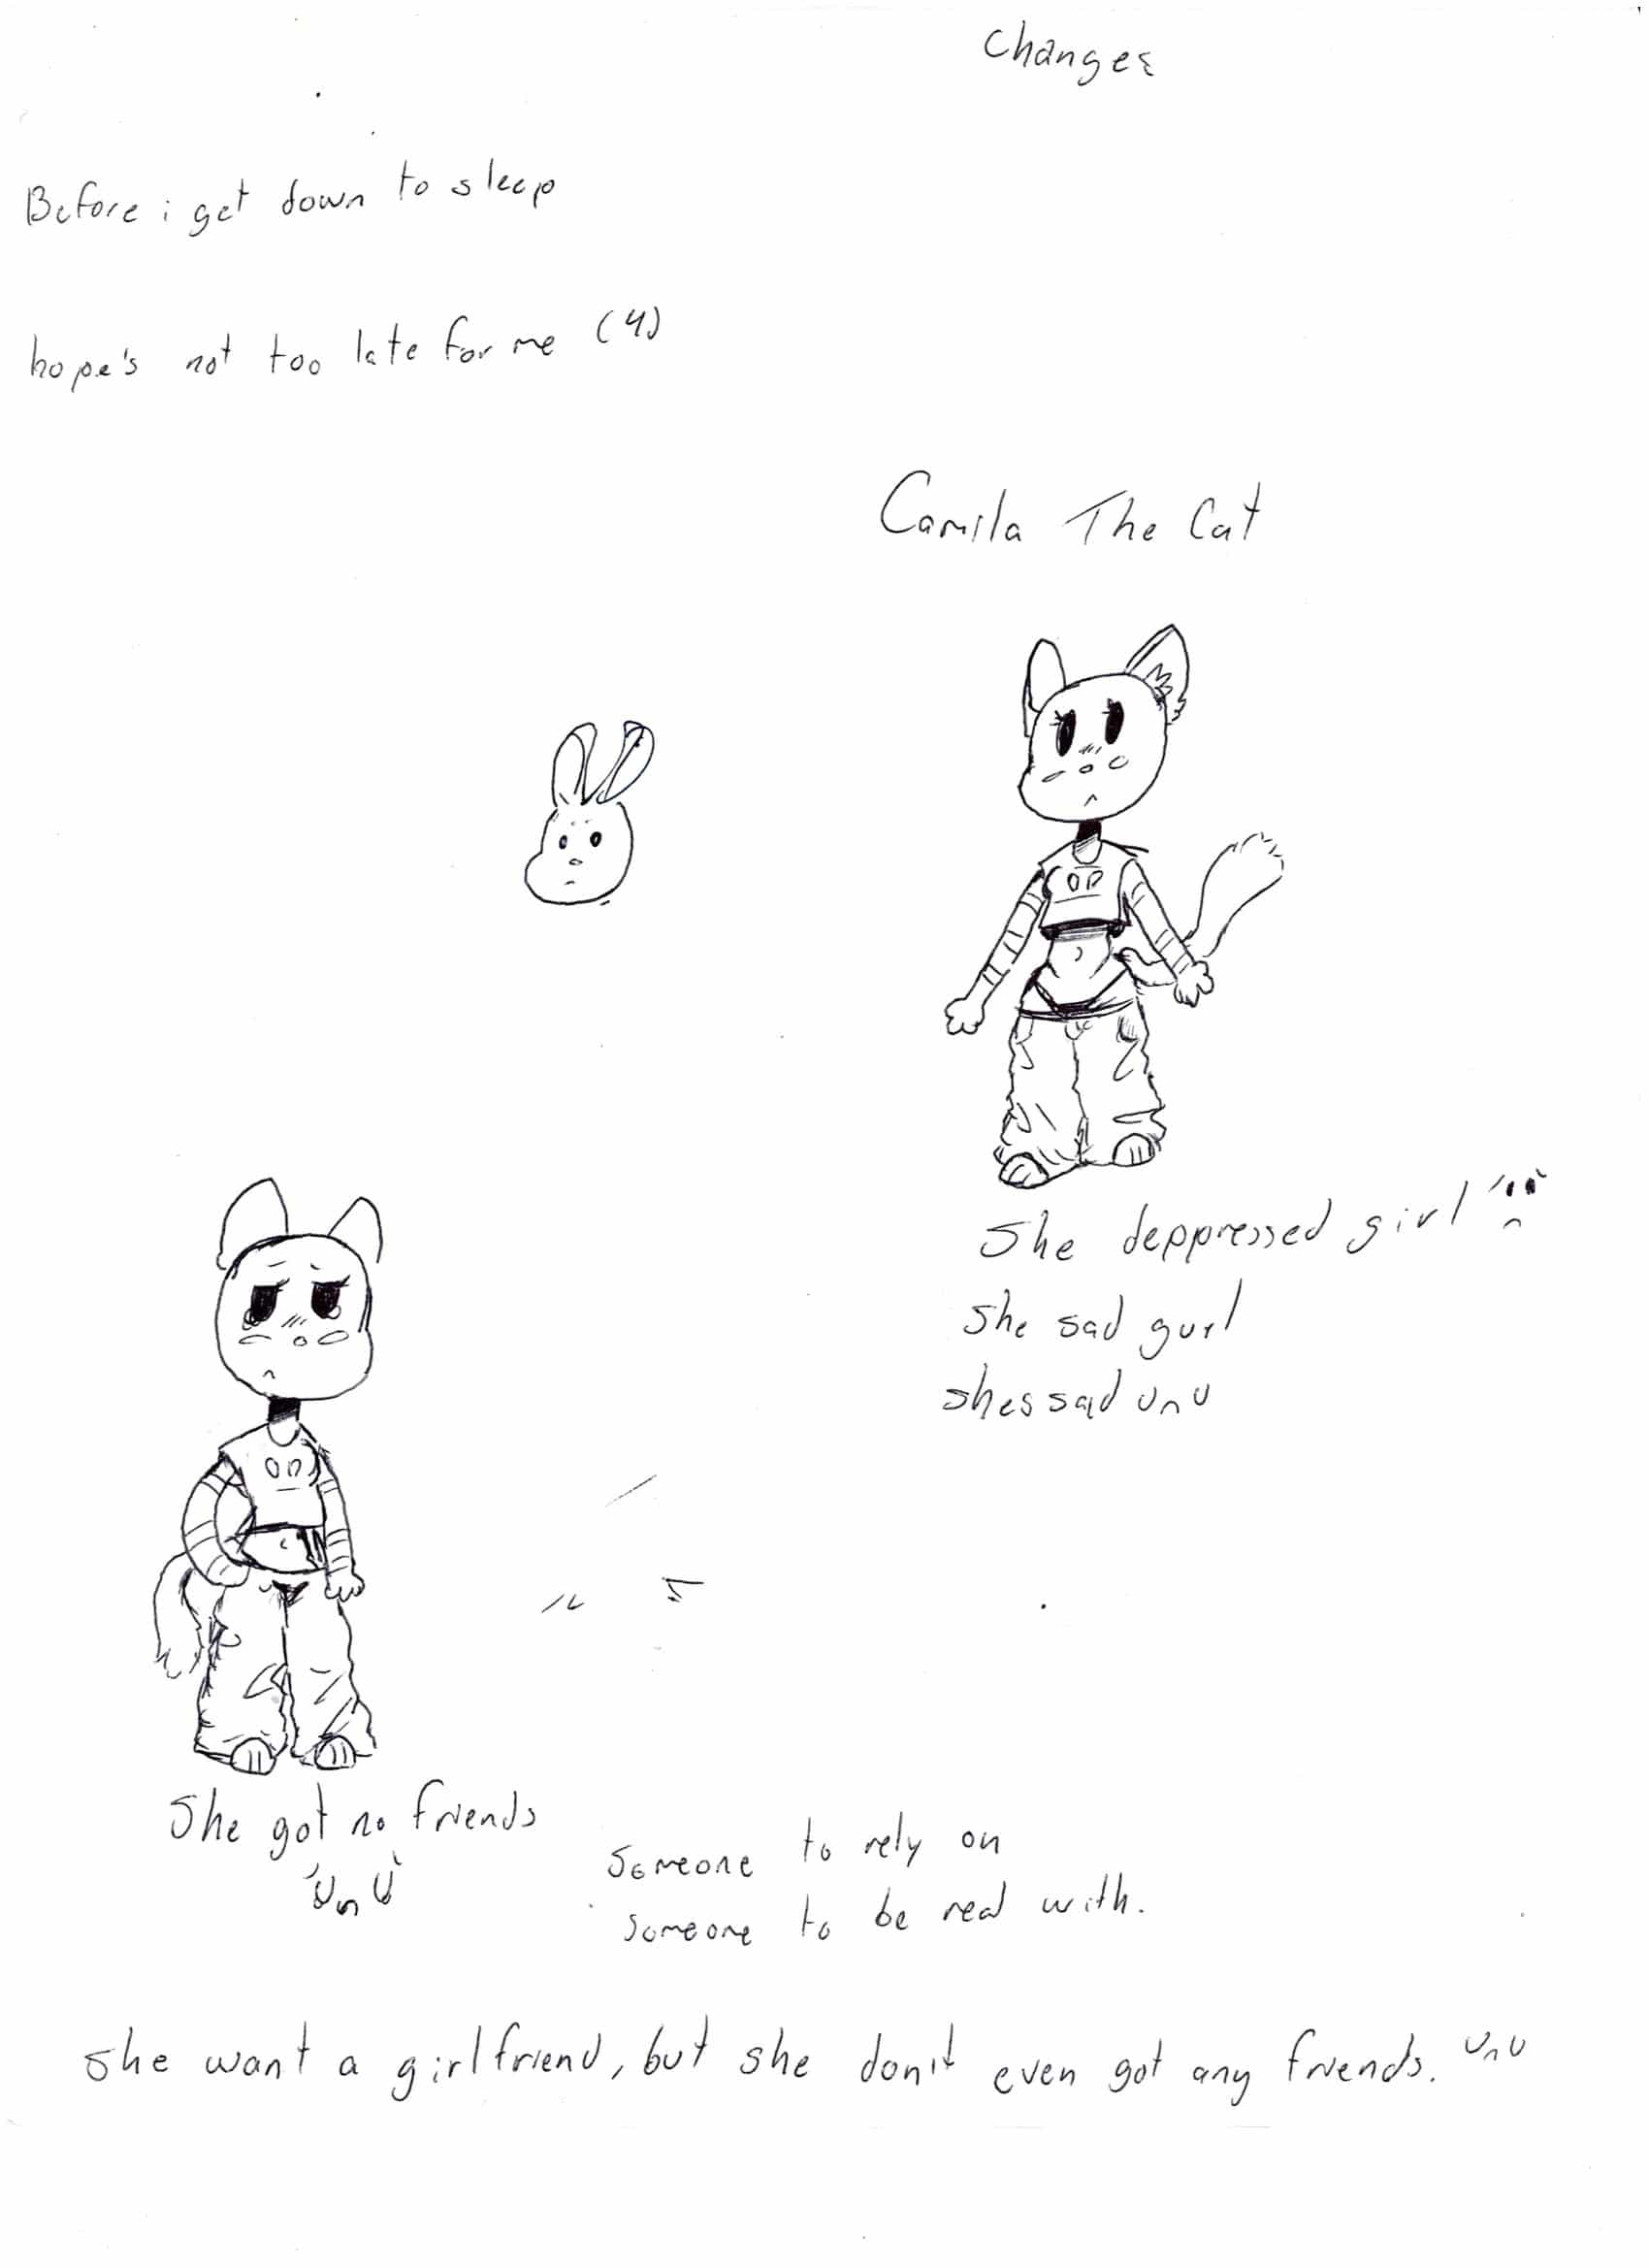 Changes
Before i get down to sleep
hope's not too late for me (4)
Camila The Cat
She deppressed girl
She sad gurl
shes sad unu
She got no friends
'UnU'
Someone to rely on
someone to be real with.
she want a girlfriend, but she don't even got any friends. UnU